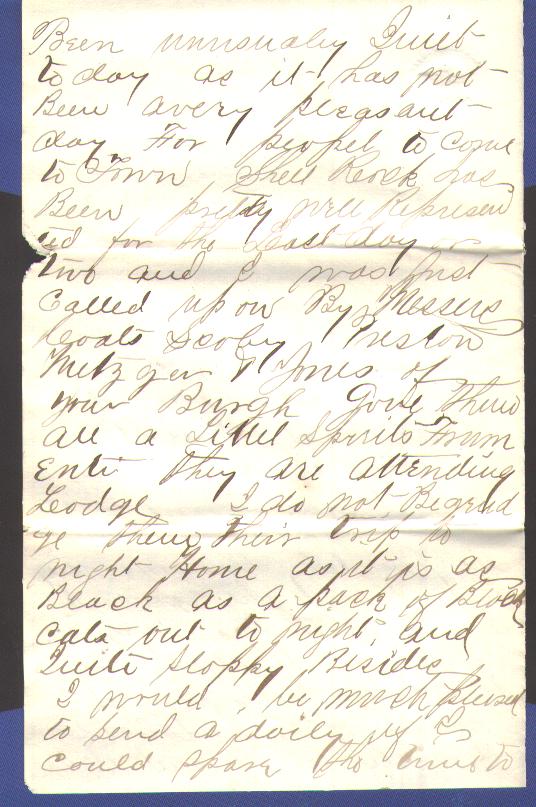 Been unusualy Quiet
to day as it has not
Been avery pleasant
day For peopel to come
to Town Shell Rock has
Been pretty well Represen
ted for the Last day or
two and I was just
Called upon By Messers
Coats Scoby Preston
Metzger & Jones of
your Burgh Gave them
all a Littel Spirits Frum
enti they are attending
Lodge I do not Begrud
ge them their trip to
night Home as it is as
Black as a pack of Black
cats out to night, and
Quite Sloppy Besides
I would be much pleased
to send a daily if I
could spare the time to